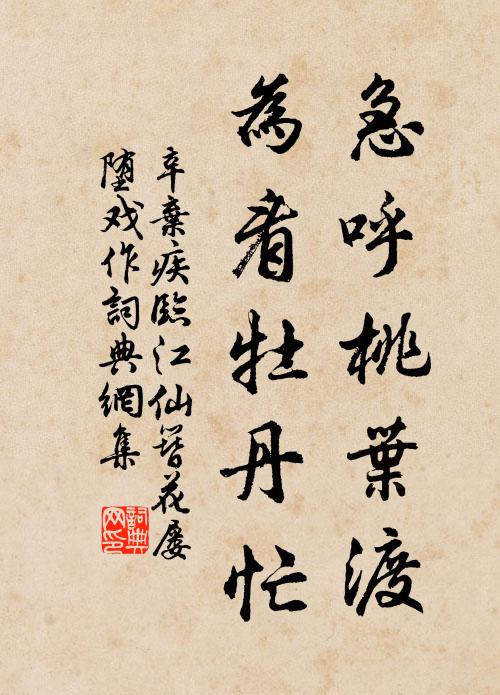 急呼桃葉渡
為看牡丹忙
辛棄疾臨江仙簪花屡
堕戏作詞典網集
詞典网印